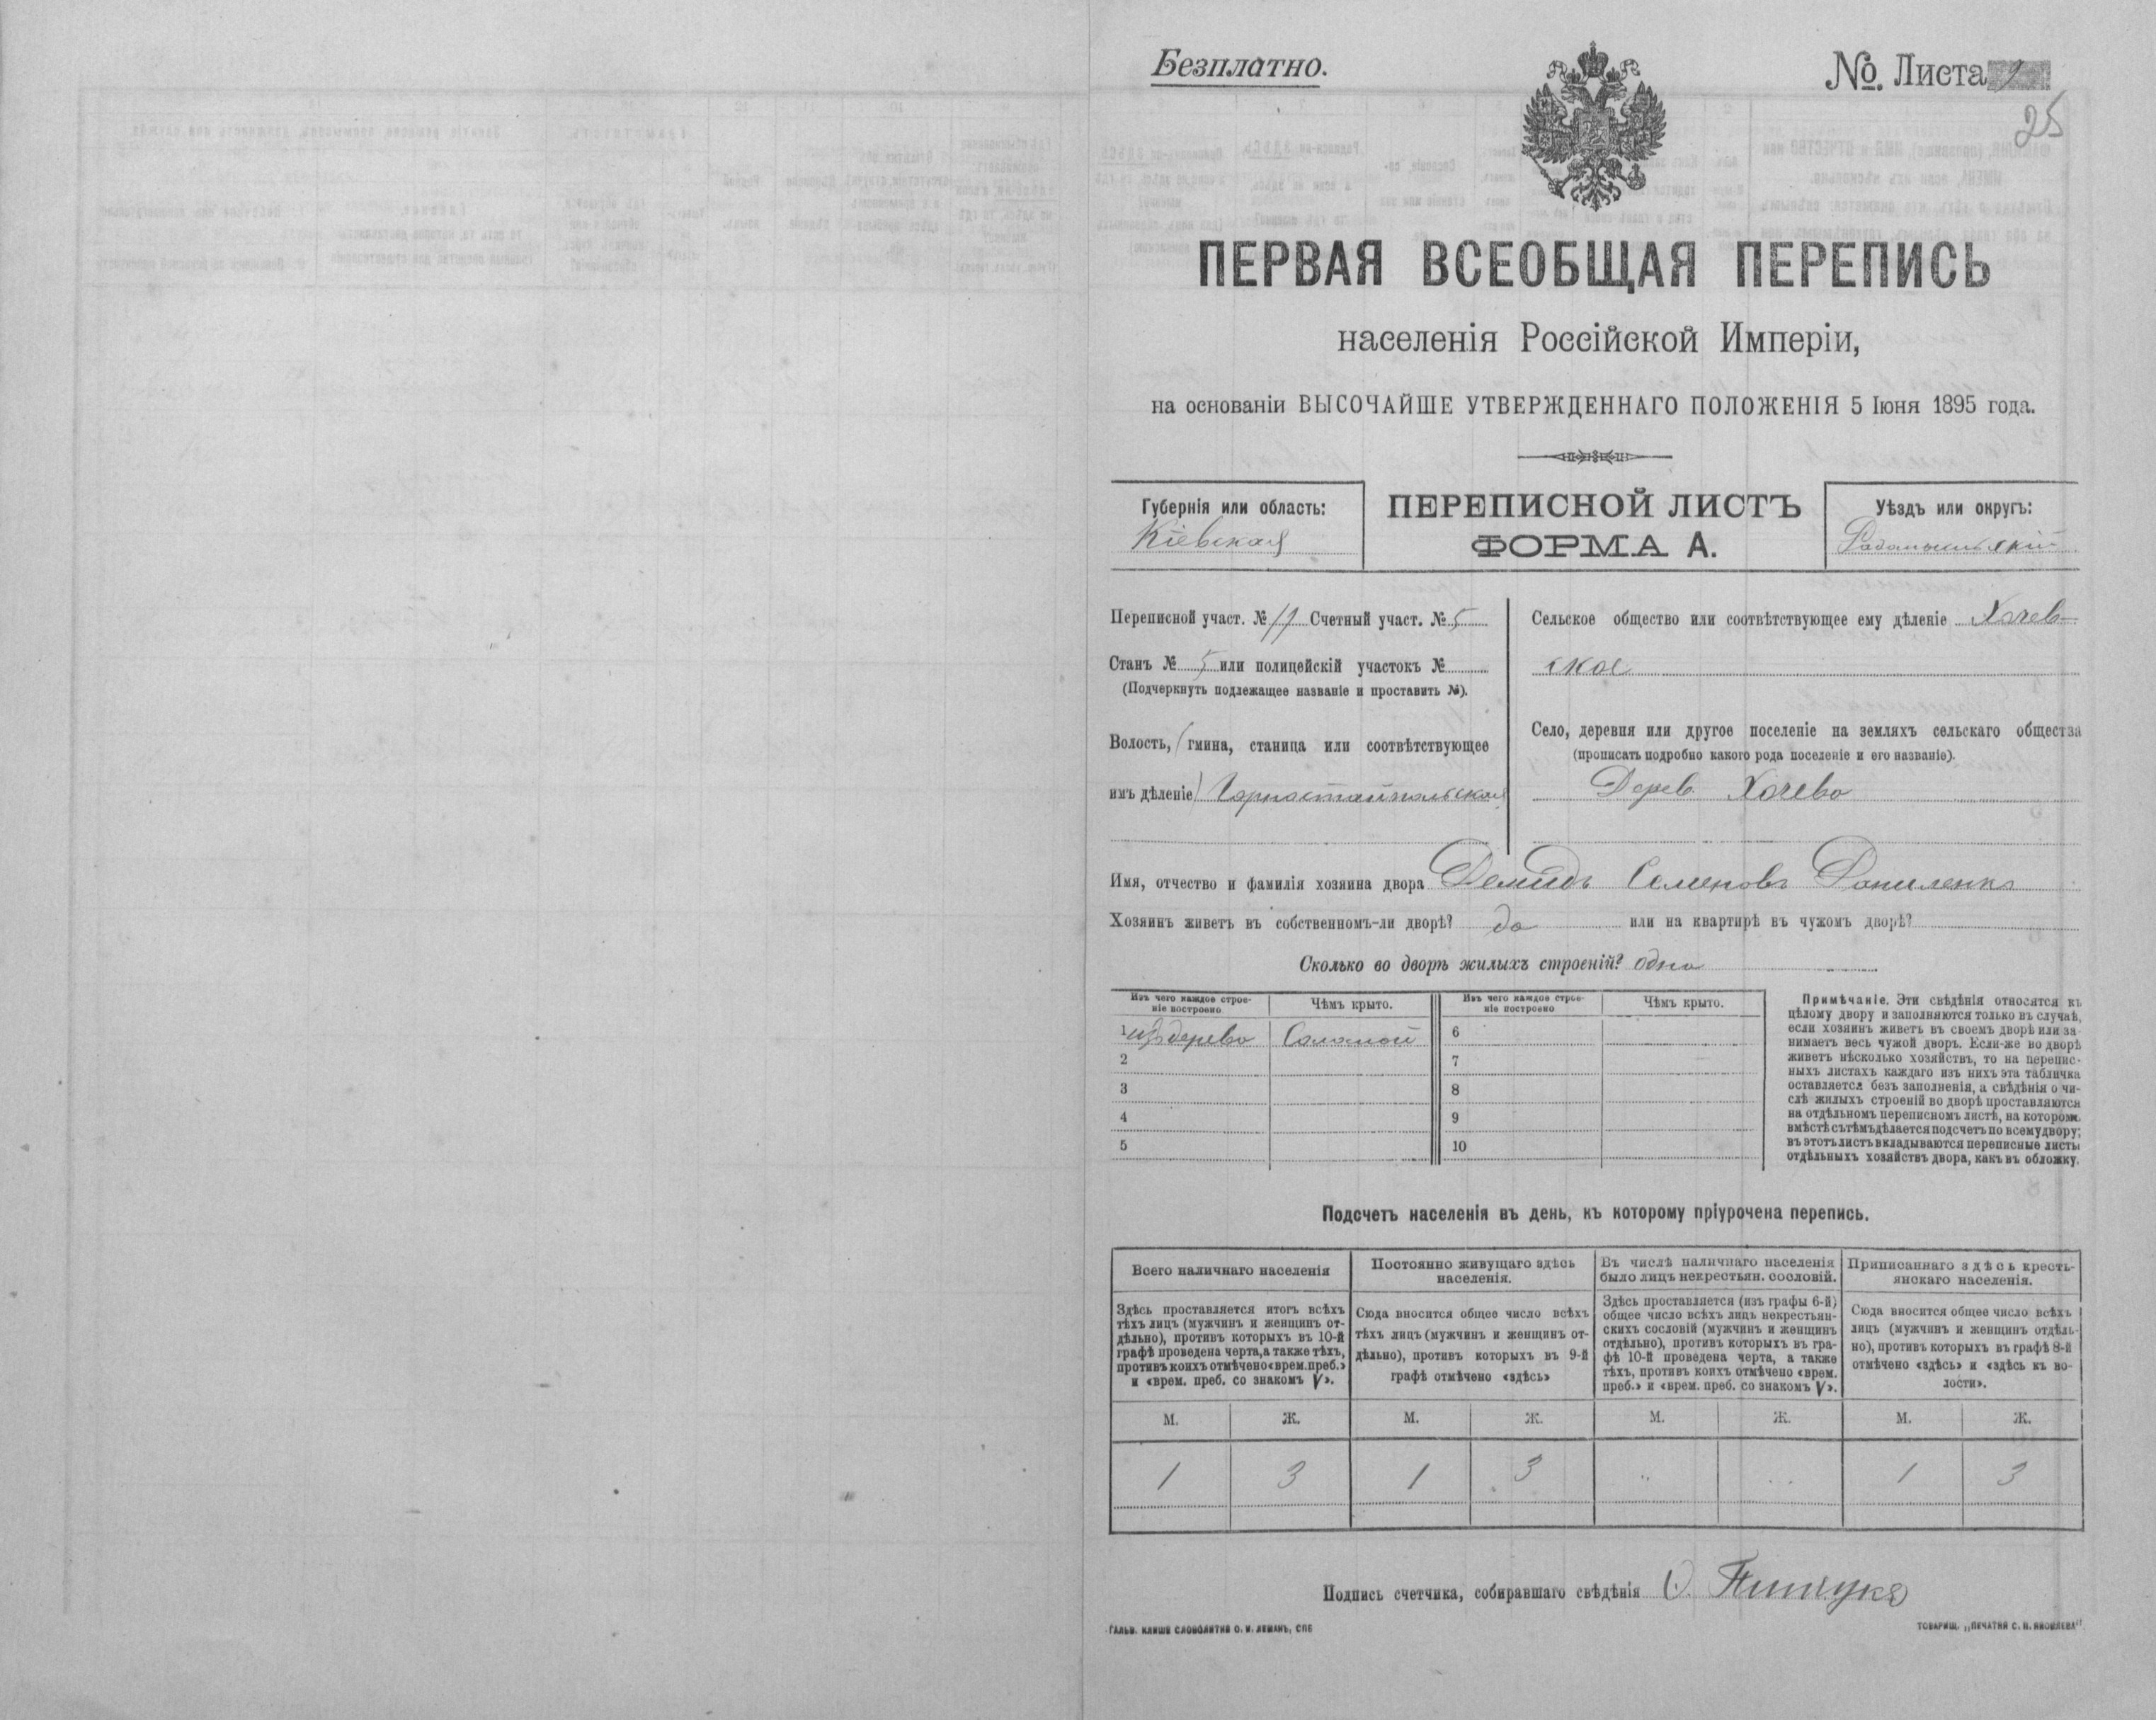 Безплатно.
№ Листа 9
25
ПЕРВАЯ ВСЕОБЩАЯ ПЕРЕПИСЬ
населенія Россійской Имперіи,
на основаніи ВЫСОЧАЙШЕ УТВЕРЖДЕННАГО ПОЛОЖЕНІЯ 5 Іюня 1895 года.
Губернія или область:
Кіевская
ПЕРЕПИСНОЙ ЛИСТЪ
ФОРМА А.
Уѣздъ или округъ:
Радомысльскій
Переписной участ. № 17 Счетный участ. № 5
Станъ № 5 или полицейскій участокъ №
(Подчеркнуть подлежащее названіе и проставить №).
Волость, (гмина, станица или соотвѣтствующее
имъ дѣленіе) Горностайпольская
Сельское общество или соотвѣтствующее ему дѣленіе Хочев-
ское
Село, деревня или другое поселеніе на земляхъ сельскаго общества
(прописать подробно какого рода поселеніе и его названіе).
Дерев. Хочево
Имя, отчество и фамилія хозяина двора Демидъ Семеновъ Даниленко
Хозяинъ живетъ въ собственномъ-ли дворѣ? да или на квартирѣ въ чужомъ дворѣ?
Сколько во дворѣ жилыхъ строеній? одно
Изъ чего каждое строе-
ніе построено
Чѣмъ крыто.
Изъ чего каждое строе-
ніе построено
Чѣмъ крыто.
1 изъ дерева Соломой 6
2 7
3 8
4 9
5 10
Примѣчаніе. Эти свѣдѣнія относятся къ
цѣлому двору и заполняются только въ случаѣ,
если хозяинъ живетъ въ своемъ дворѣ или за-
нимаетъ весь чужой дворъ. Если-же во дворѣ
живетъ нѣсколько хозяйствъ, то на перепис-
ныхъ листахъ каждаго изъ нихъ эта табличка
оставляется безъ заполненія, а свѣдѣнія о чи-
слѣ жилыхъ строеній во дворѣ проставляются
на отдѣльномъ переписномъ листѣ, на которомъ
вмѣстѣ съ тѣмъ дѣлается подсчетъ по всему двору;
въ этотъ листъ вкладываются переписные листы
отдѣльныхъ хозяйствъ двора, какъ въ обложку.
Подсчетъ населенія въ день, къ которому пріурочена перепись.
Всего наличнаго населенія
Здѣсь проставляется итогъ всѣхъ
тѣхъ лицъ (мужчинъ и женщинъ от-
дѣльно), противъ которыхъ въ 10-й
графѣ проведена черта, а также тѣхъ,
противъ коихъ отмѣчено «врем. преб.»
и «врем. преб. со знакомъ V».
Постоянно живущаго здѣсь
населенія.
Сюда вносится общее число всѣхъ
тѣхъ лицъ (мужчинъ и женщинъ от-
дѣльно), противъ которыхъ въ 9-й
графѣ отмѣчено «здѣсь»
Въ числѣ наличнаго населенія
было лицъ некрестьян. сословій.
Здѣсь проставляется (изъ графы 6-й)
общее число всѣхъ лицъ некрестьян-
скихъ сословій (мужчинъ и женщинъ
отдѣльно), противъ которыхъ въ гра-
фѣ 10-й проведена черта, а также
тѣхъ, противъ коихъ отмѣчено «врем.
преб.» и «врем. преб. со знакомъ V».
Приписаннаго здѣсь кресть-
янскаго населенія.
Сюда вносится общее число всѣхъ
лицъ (мужчинъ и женщинъ отдѣль-
но), противъ которыхъ въ графѣ 8-й
отмѣчено «здѣсь» и «здѣсь къ во-
лости».
М. Ж. М. Ж. М. Ж. М. Ж.
1 3 1 3 " " 1 3
Подпись счетчика, собиравшаго свѣдѣнія
ГАЛЬВ. КЛИШЕ СЛОВОЛИТНИ О. И. ЛЕМАНЪ, СПБ
ТОВАРИЩ. „ПЕЧАТНЯ С. П. ЯКОВЛЕВА"